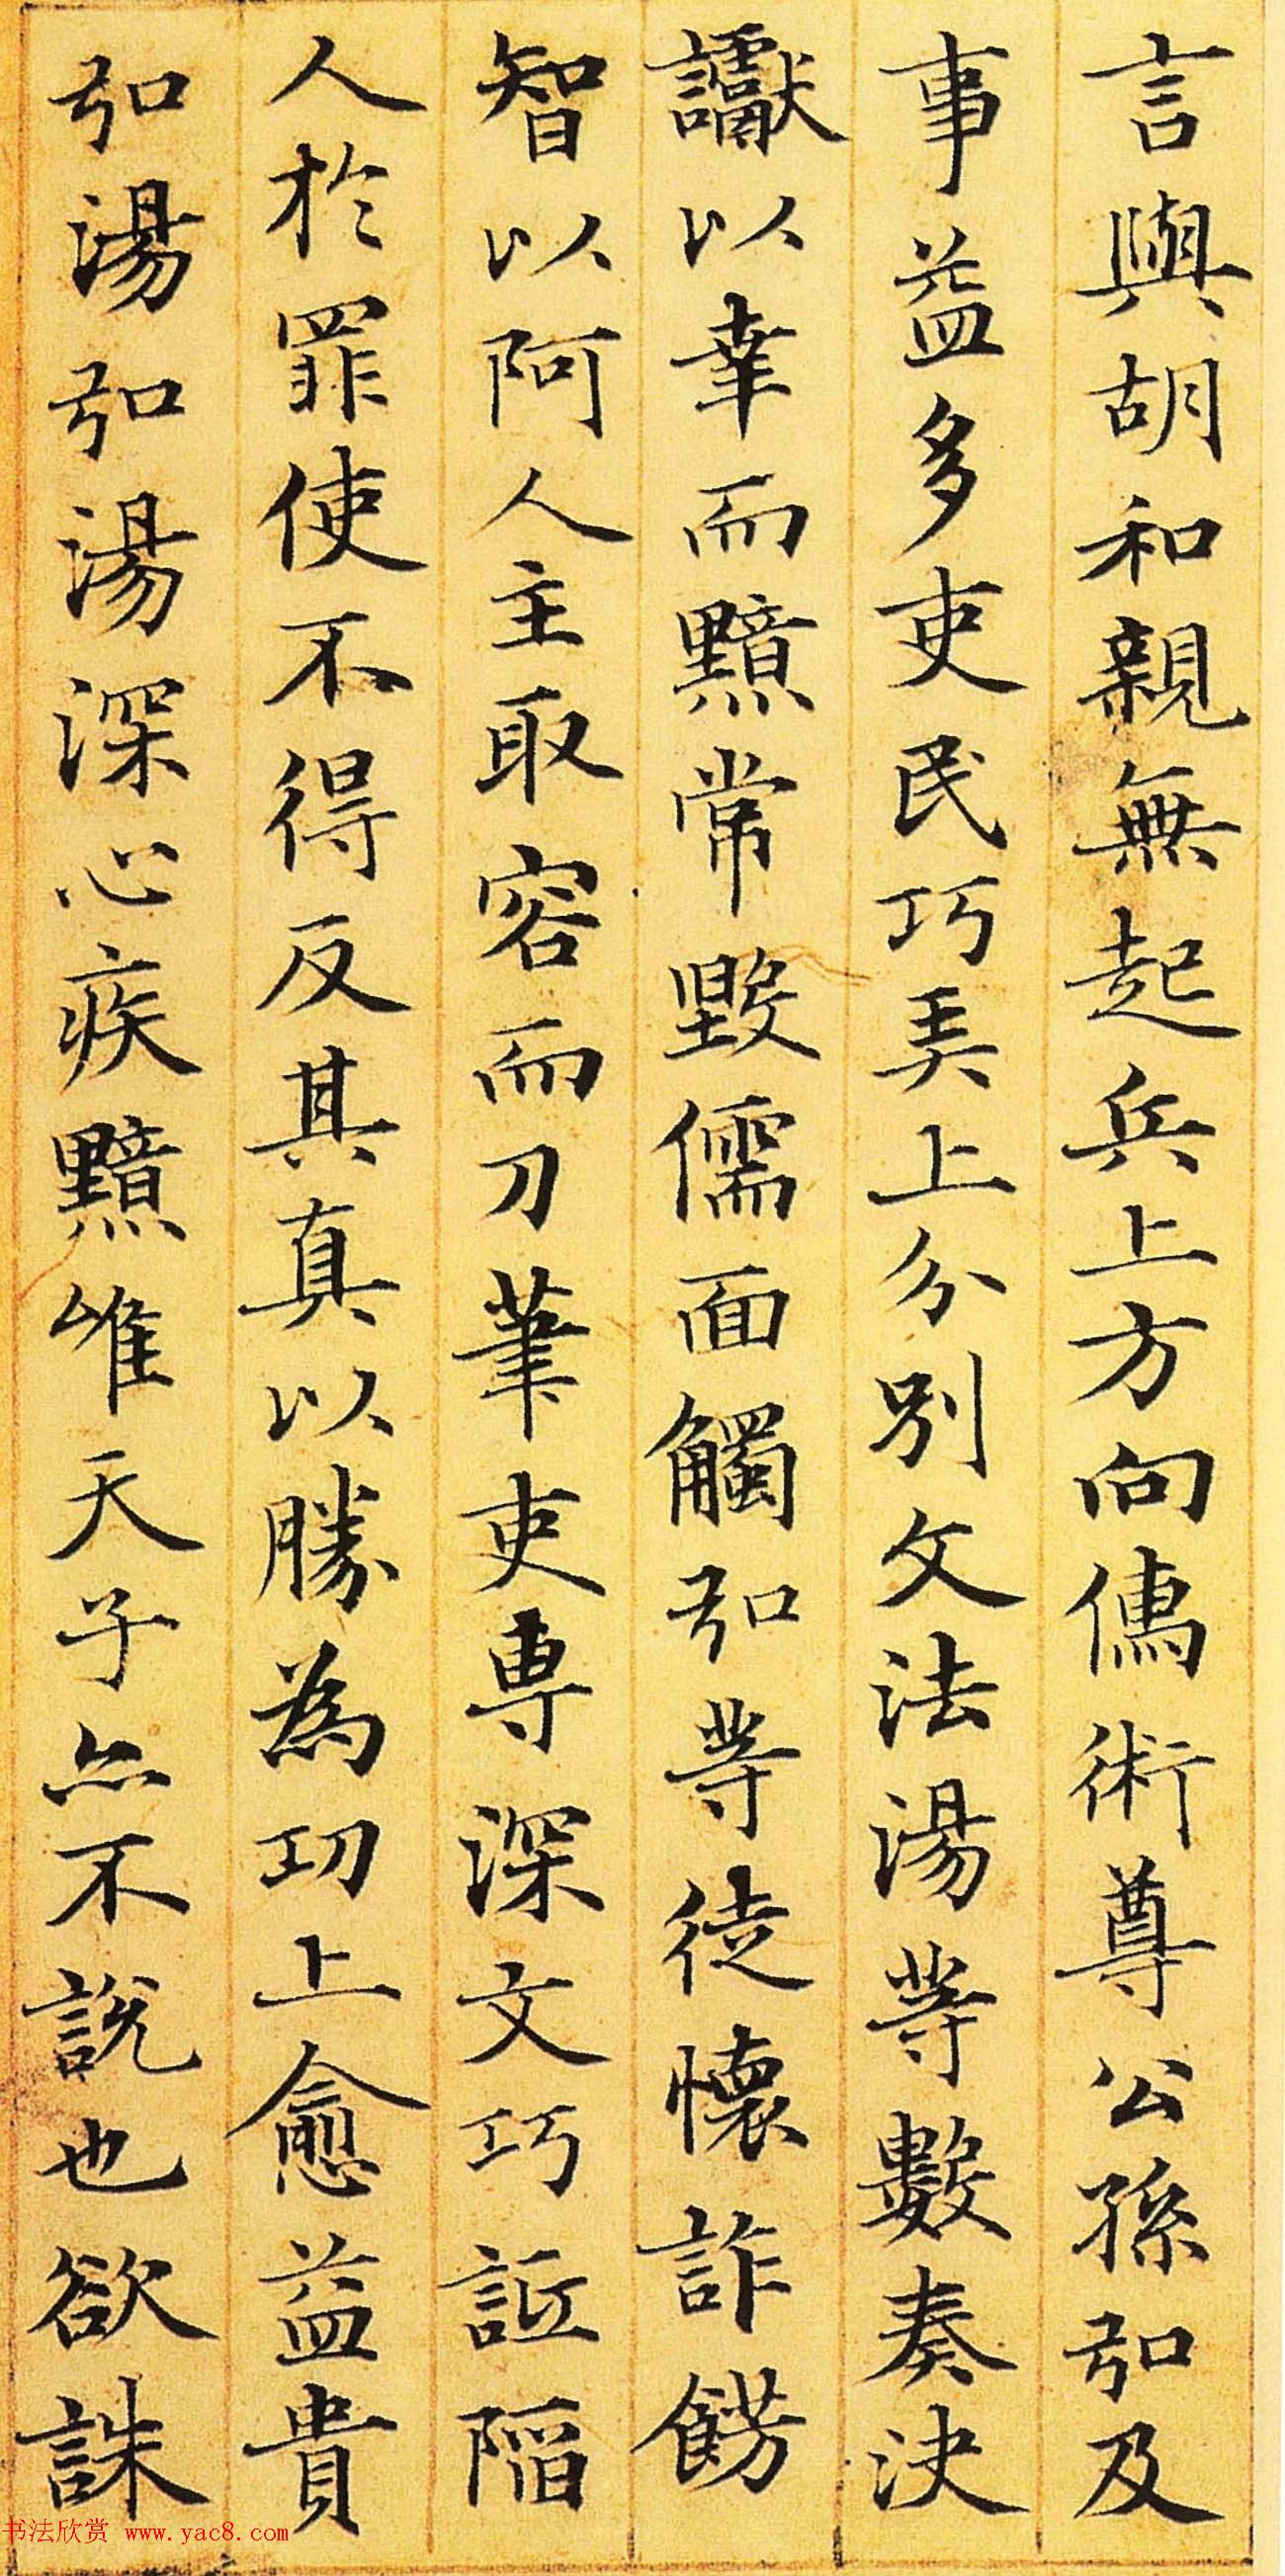 言與胡和親無起兵上方向儒術尊公孫弘及
事益多吏民巧弄上分別文法湯等數奏決
讞以幸而黯常毀儒面觸弘等徒懷詐飾
智以阿人主取容而刀筆吏專深文巧詆陷
人於罪使不得反其真真以勝為功上愈益貴
弘湯弘湯深心疾黯唯天子亦不說也欲誅
书法欣赏 www.yac8.com